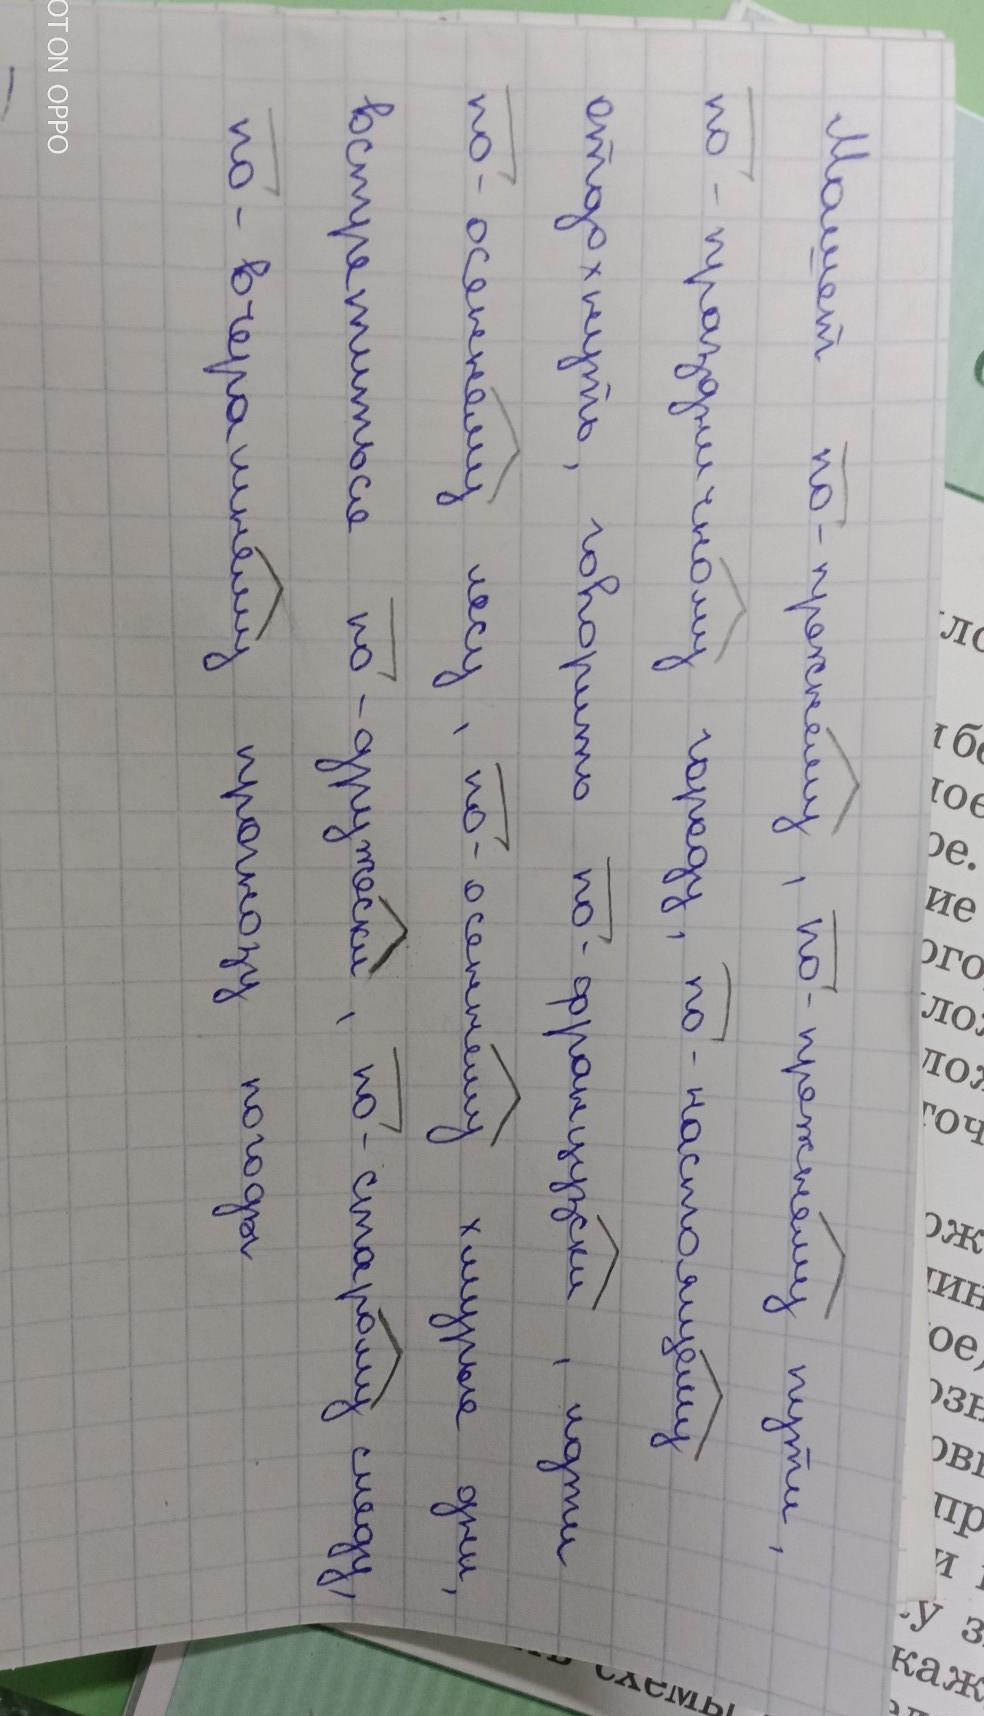 Мошет по-прежнему, по-прежнему пути,
по-праздничному городу, по-настоящему
отдохнуть, говорить по-французски, идти
по-осеннему лесу, по-осеннему хмурые дни,
встретиться по-дружески, по-старому следу,
по-вчерашнему прогнозу погоды
OT ON OPPO
ло
и бе
ное
ое.
ие
ого,
лож
лож
точ
ож
лин
ое,
озн
овы
пр
и
у з
каж
схемы